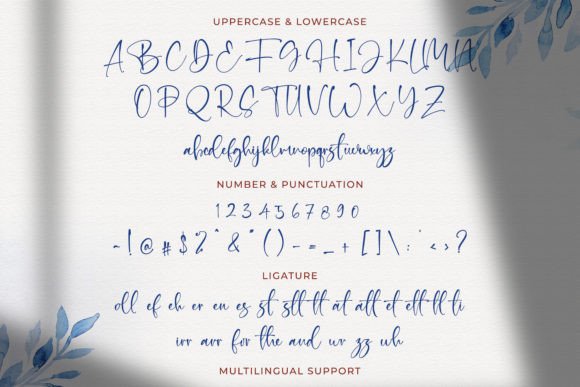 UPPERCASE & LOWERCASE
ABCDEFGHIJKLMN
OPQRSTUVWXYZ
abcdefghijklmnopqrstuvwxyz
NUMBER & PUNCTUATION
1234567890
~!@#$%^&*()-=_+[]\:`<>?
LIGATURE
oll ef eh er en es st stt tt at att et ett tl ti
irr arr for the and wr zz wh
MULTILINGUAL SUPPORT